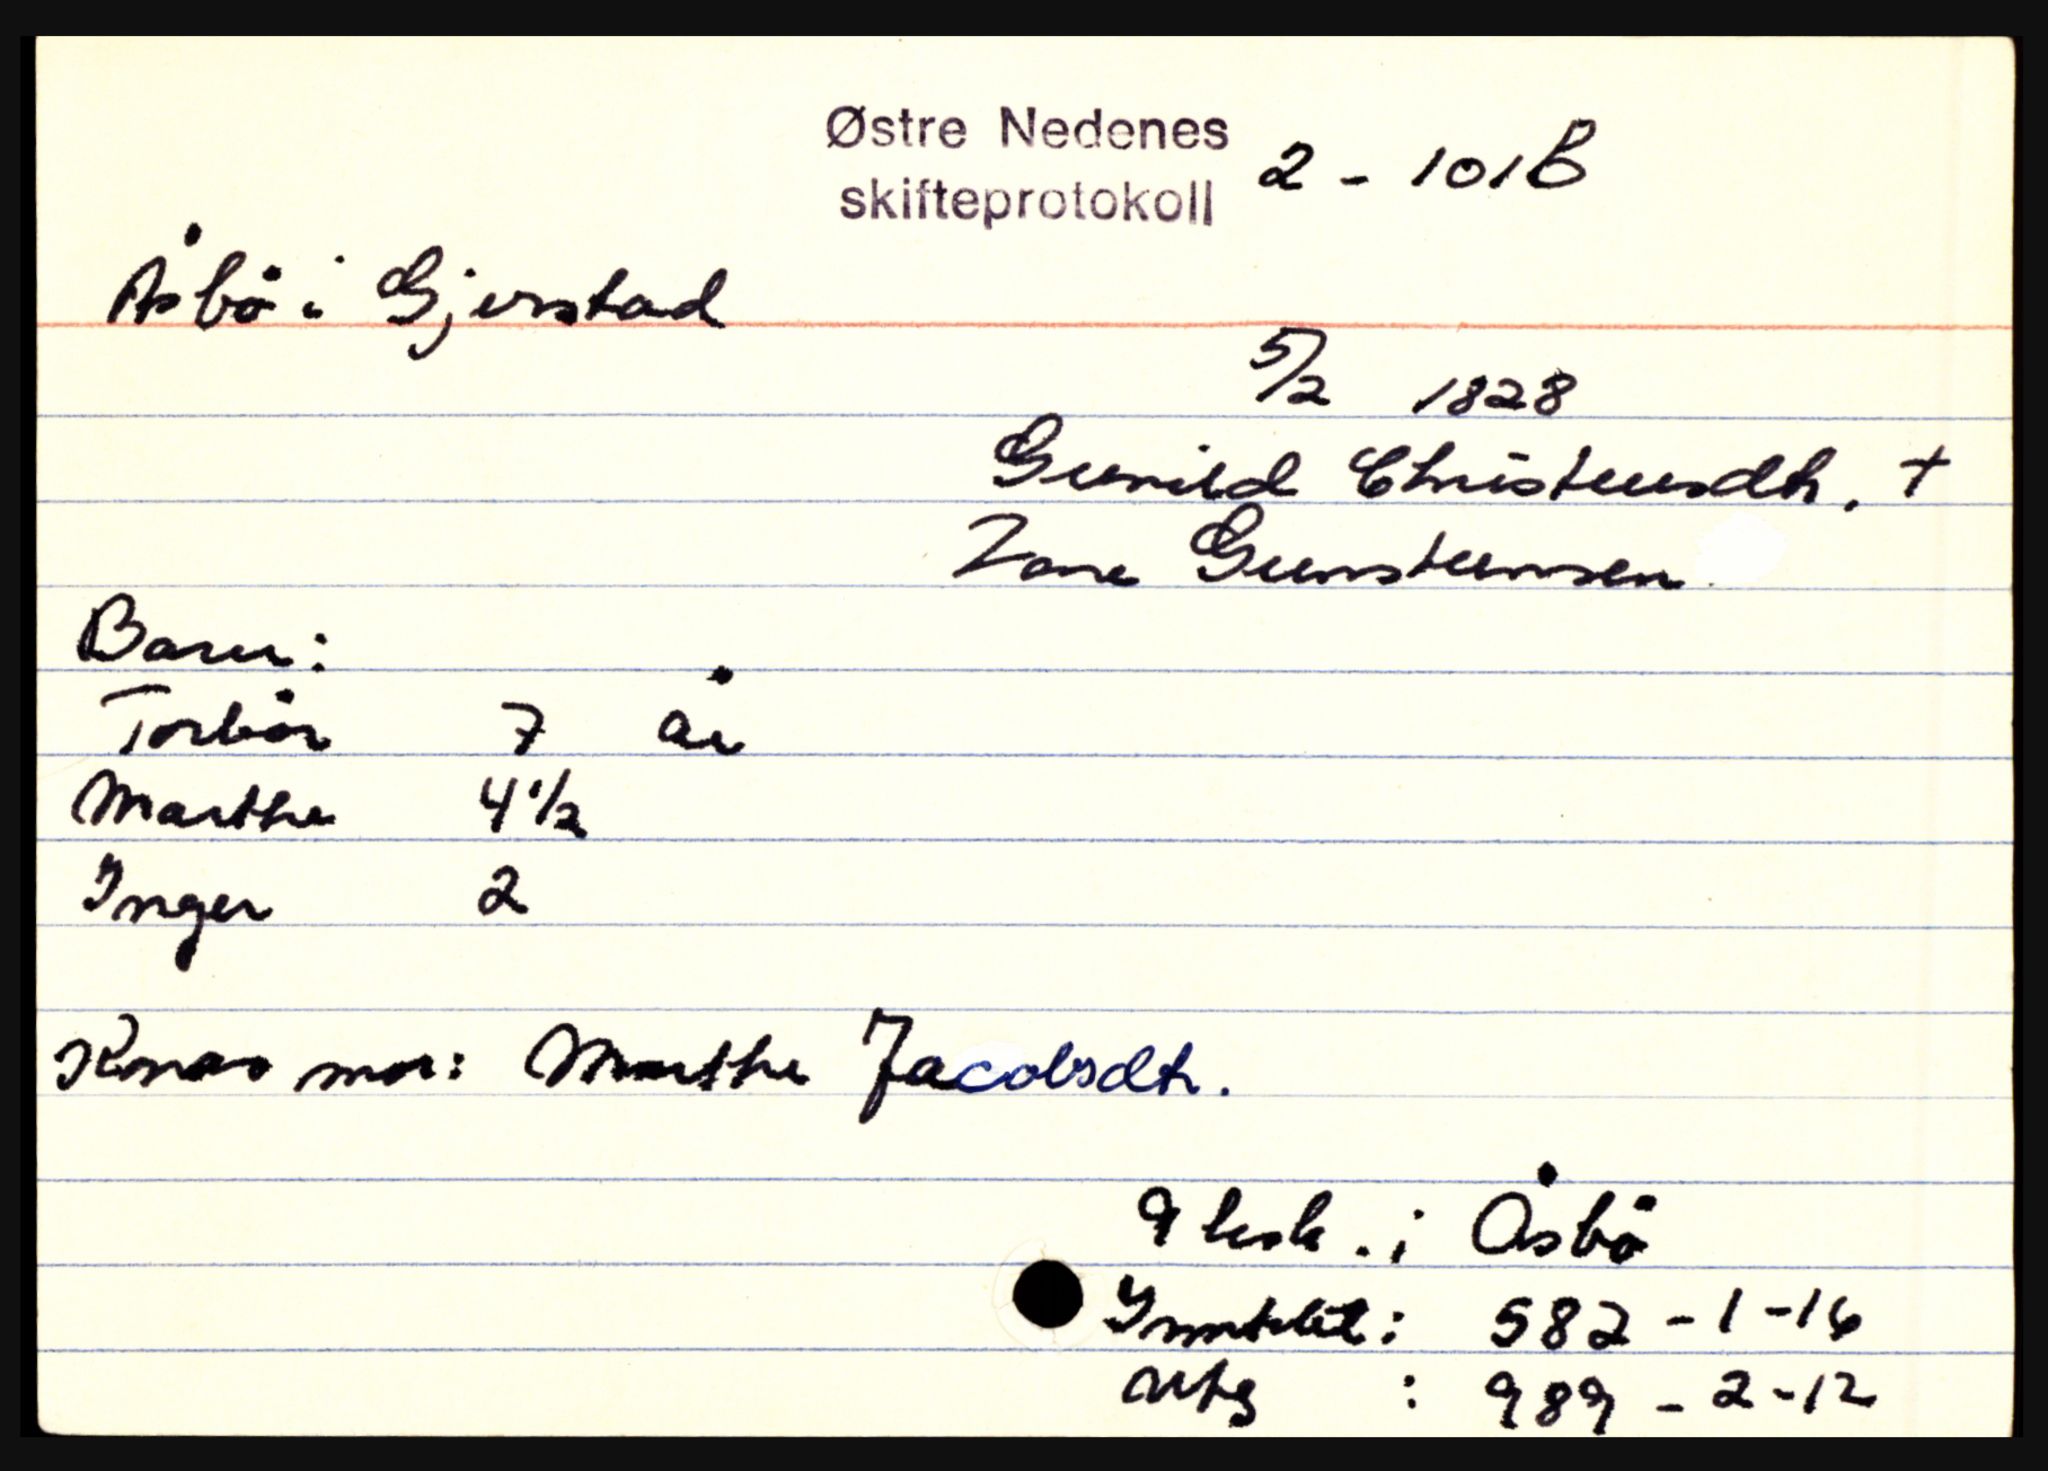 Østre Nedenes
skifteprotokoll 2 - 101B
Åsbø i Gjerstad
5/2 1828
Gunild Christensdtr. +
Zone Gunstensen
Barn:
Torbör 7 år
Marthe 4 1/2
Inger 2
Konas mor: Marthe Jacobsdtr.
9 husk. i Åsbö
Inntekt: 582 - 1 - 16
Utg : 989 - 2 - 12